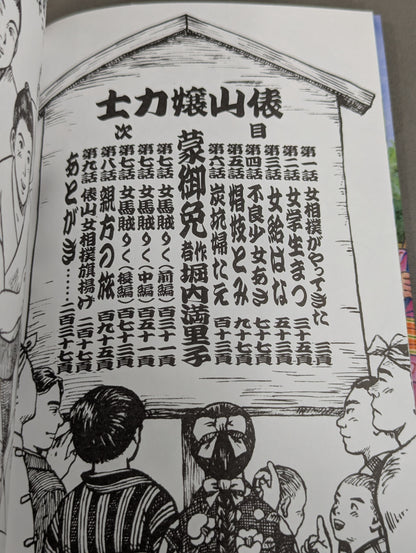 俵山嬢力士
目次
第一話 女相撲がやってきた 三頁
第二話 女学生まつ 三十五頁
第三話 女給はな 五十三頁
第四話 不良少女あき 七十七頁
第五話 娼妓とみ 九十七頁
第六話 炭坑婦たえ 百十三頁
蒙御免 作者 堀内満里子
第七話 女馬賊りく(前編) 百三十一頁
第七話 女馬賊りく(中編) 百五十一頁
第七話 女馬賊りく(後編) 百七十三頁
第八話 親方の旅 百九十五頁
第九話 俵山女相撲旗揚げ 二百十七頁
あとがき…… 二百三十七頁